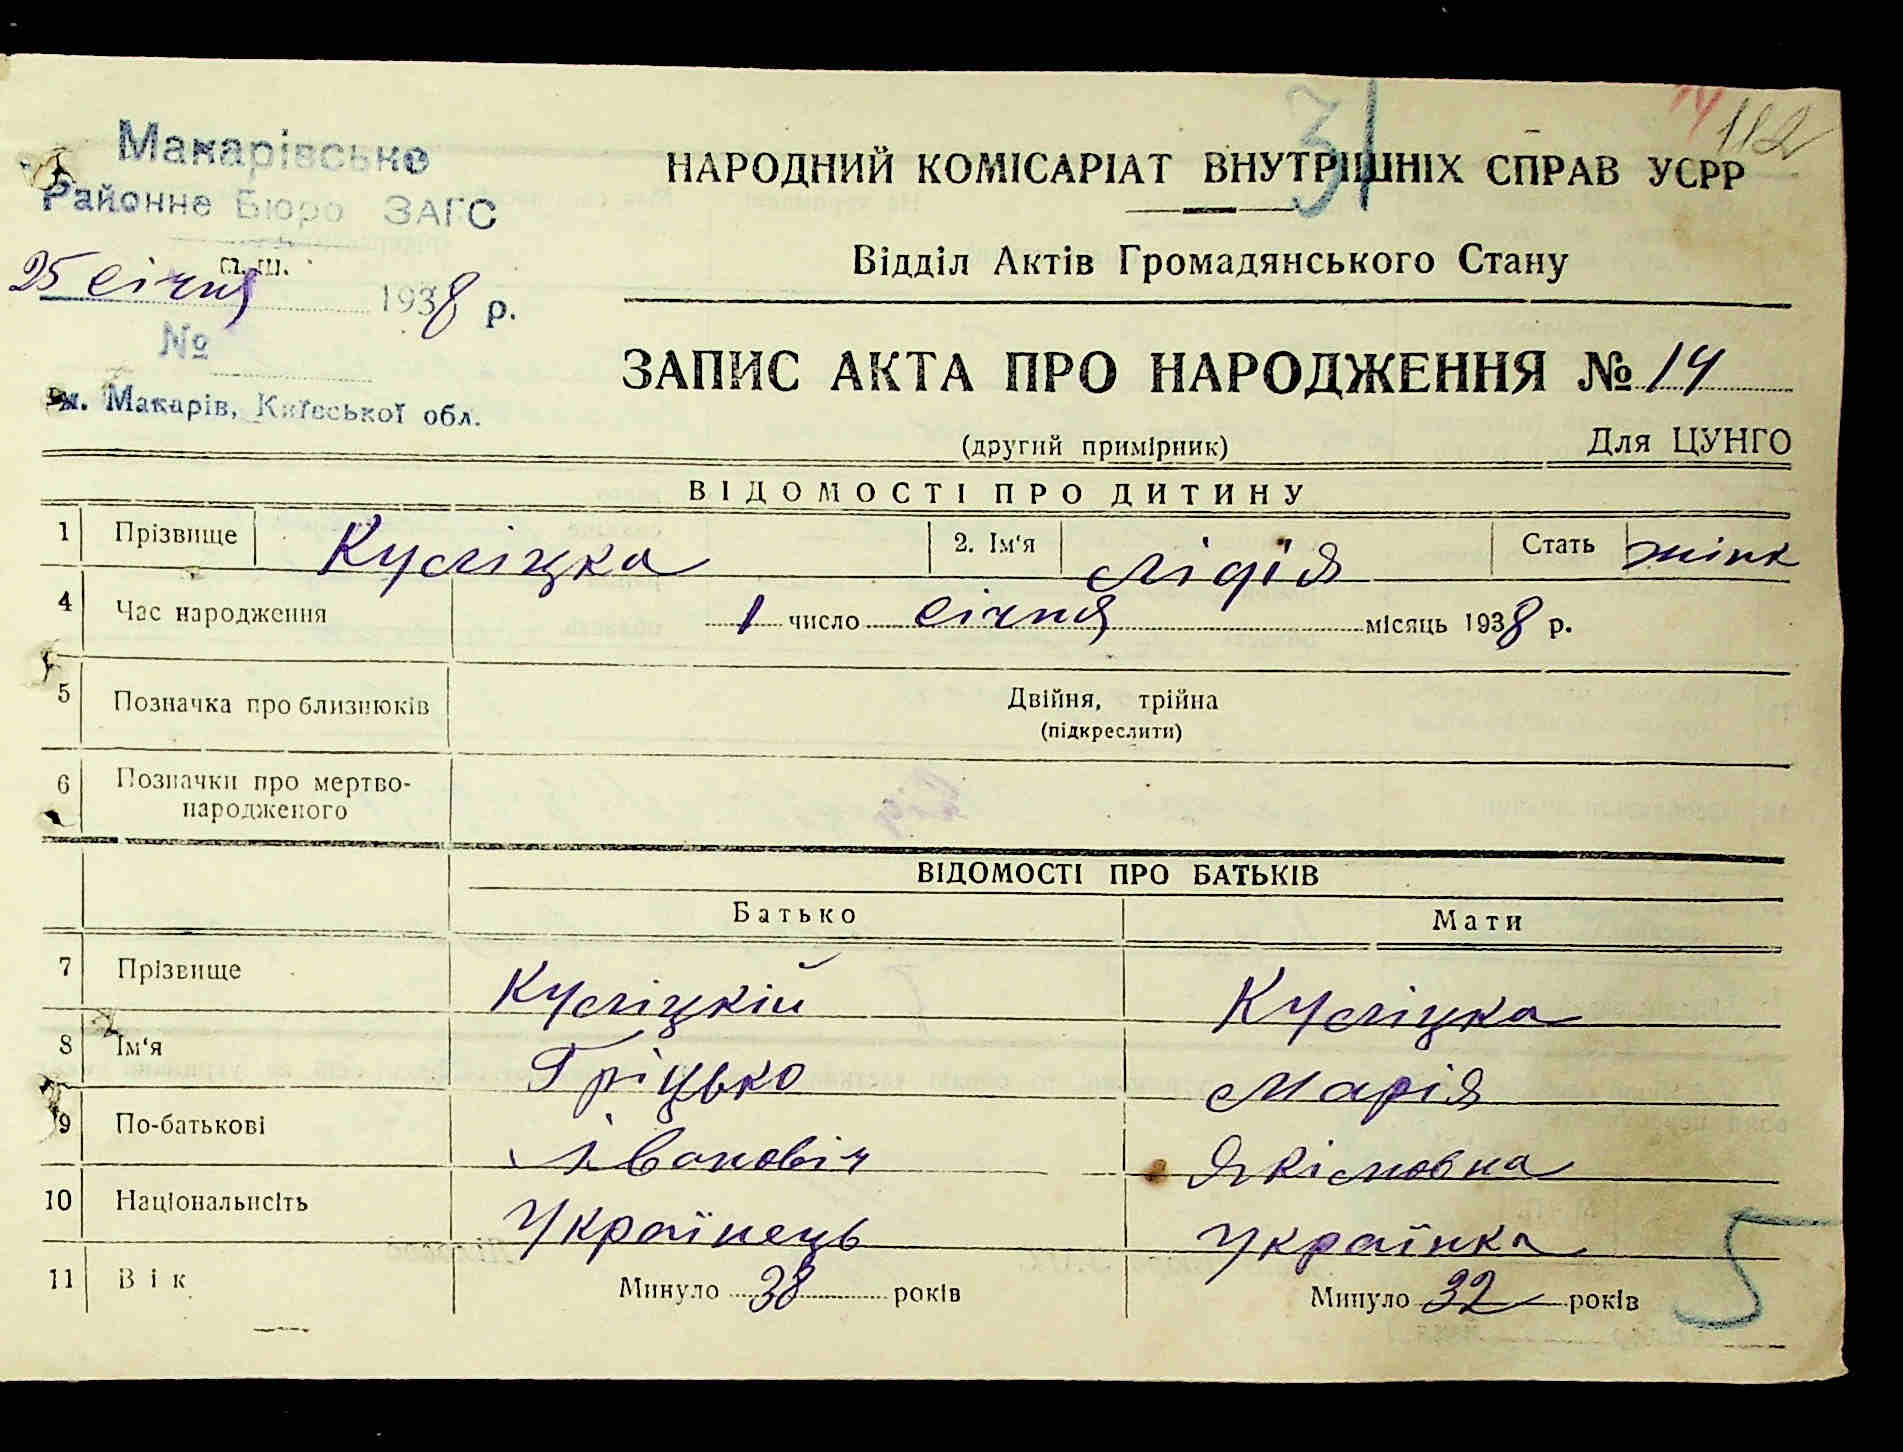 112
31
Макарівське
Районне Бюро ЗАГС
НАРОДНИЙ КОМІСАРІАТ ВНУТРІШНІХ СПРАВ УСРР
Відділ Актів Громадянського Стану
25 січня 1938 р.
№
м. Макарів, Київської обл.
ЗАПИС АКТА ПРО НАРОДЖЕННЯ № 14
(другий примірник) Для ЦУНГО
ВІДОМОСТІ ПРО ДИТИНУ
1 Прізвище Кусліцка 2. Ім'я Лідія Стать жінк
4 Час народження 1 число січня місяць 1938 р.
5 Позначка про близнюків Двійня, трійна
(підкреслити)
6 Позначки про мертво-
народженого
ВІДОМОСТІ ПРО БАТЬКІВ
Батько Мати
7 Прізвище Кусліцкій Кусліцка
8 Ім'я Гріцько Марія
9 По-батькові Івановіч Якімовна
10 Національнсіть Українець Українка
11 Вік Минуло 38 років Минуло 32 років
5